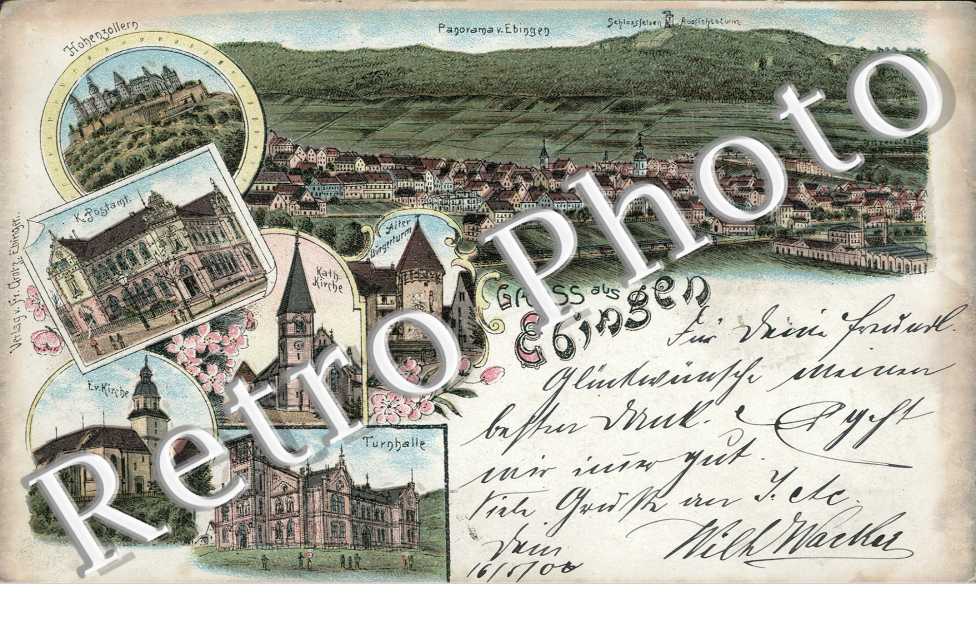 Hohenzollern
Panorama v. Ebingen
Schlossfelsen Aussichtsturm
K. Postamt.
Alter
Bürgerturm
Kath.
Kirche
Ev. Kirche
Turnhalle
Verlag v. Fr. Ebingen.
Gruss aus
Ebingen
Für Deine freundl.
Glückwünsche meinen
besten Dank. Es geht
mir immer gut.
Viele Grüße an J. etc.
Dein
Wilh Wacker
Retro Photo